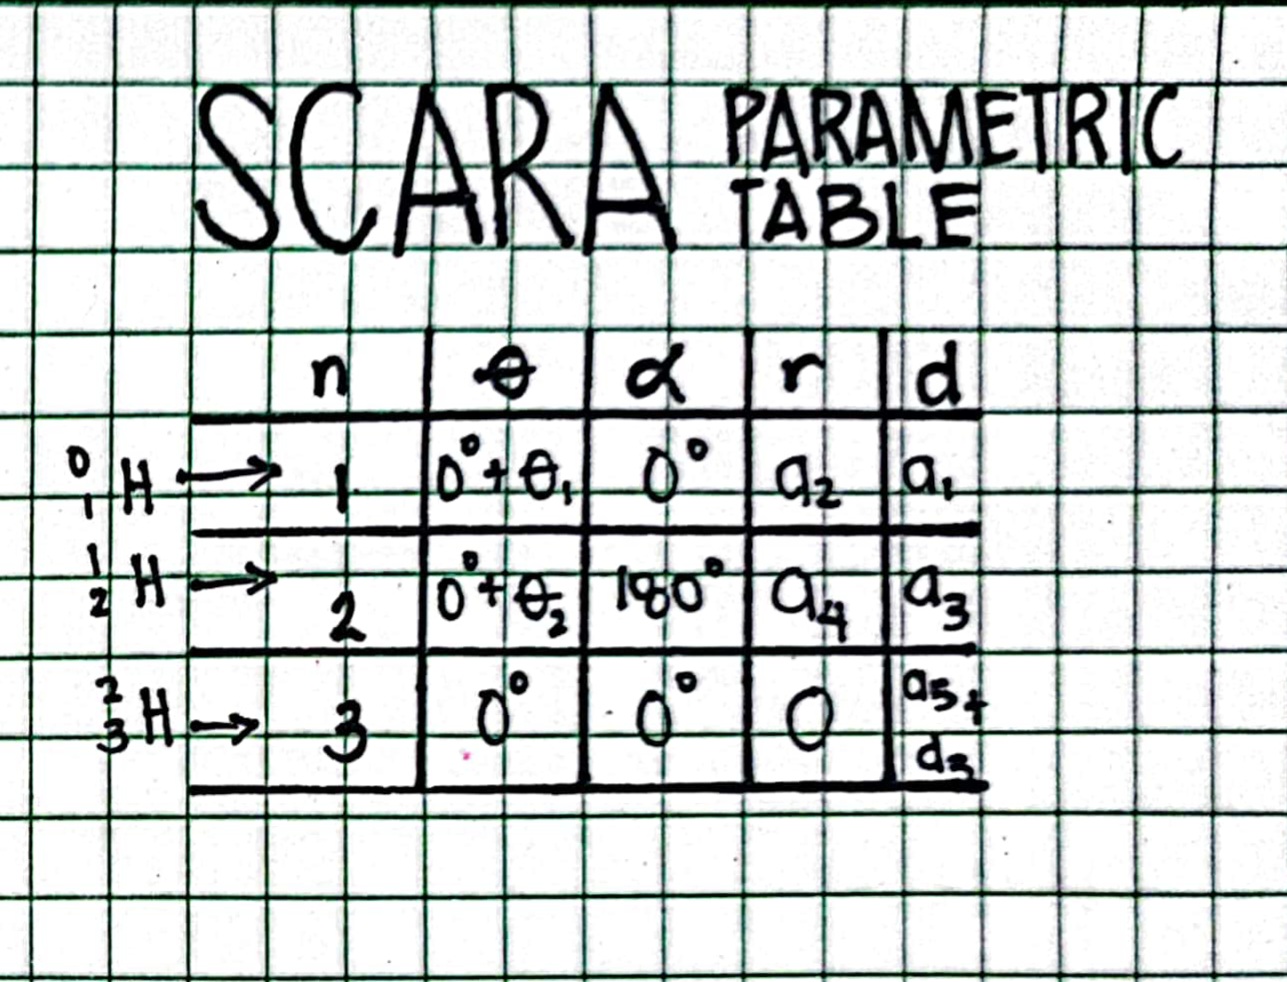 SCARA PARAMETRIC
TABLE
n θ α r d
⁰₁H → 1 0°+θ₁ 0° a₂ a₁
¹₂H → 2 0°+θ₂ 180° a₄ a₃
²₃H → 3 0° 0° 0 a₅+
d₃